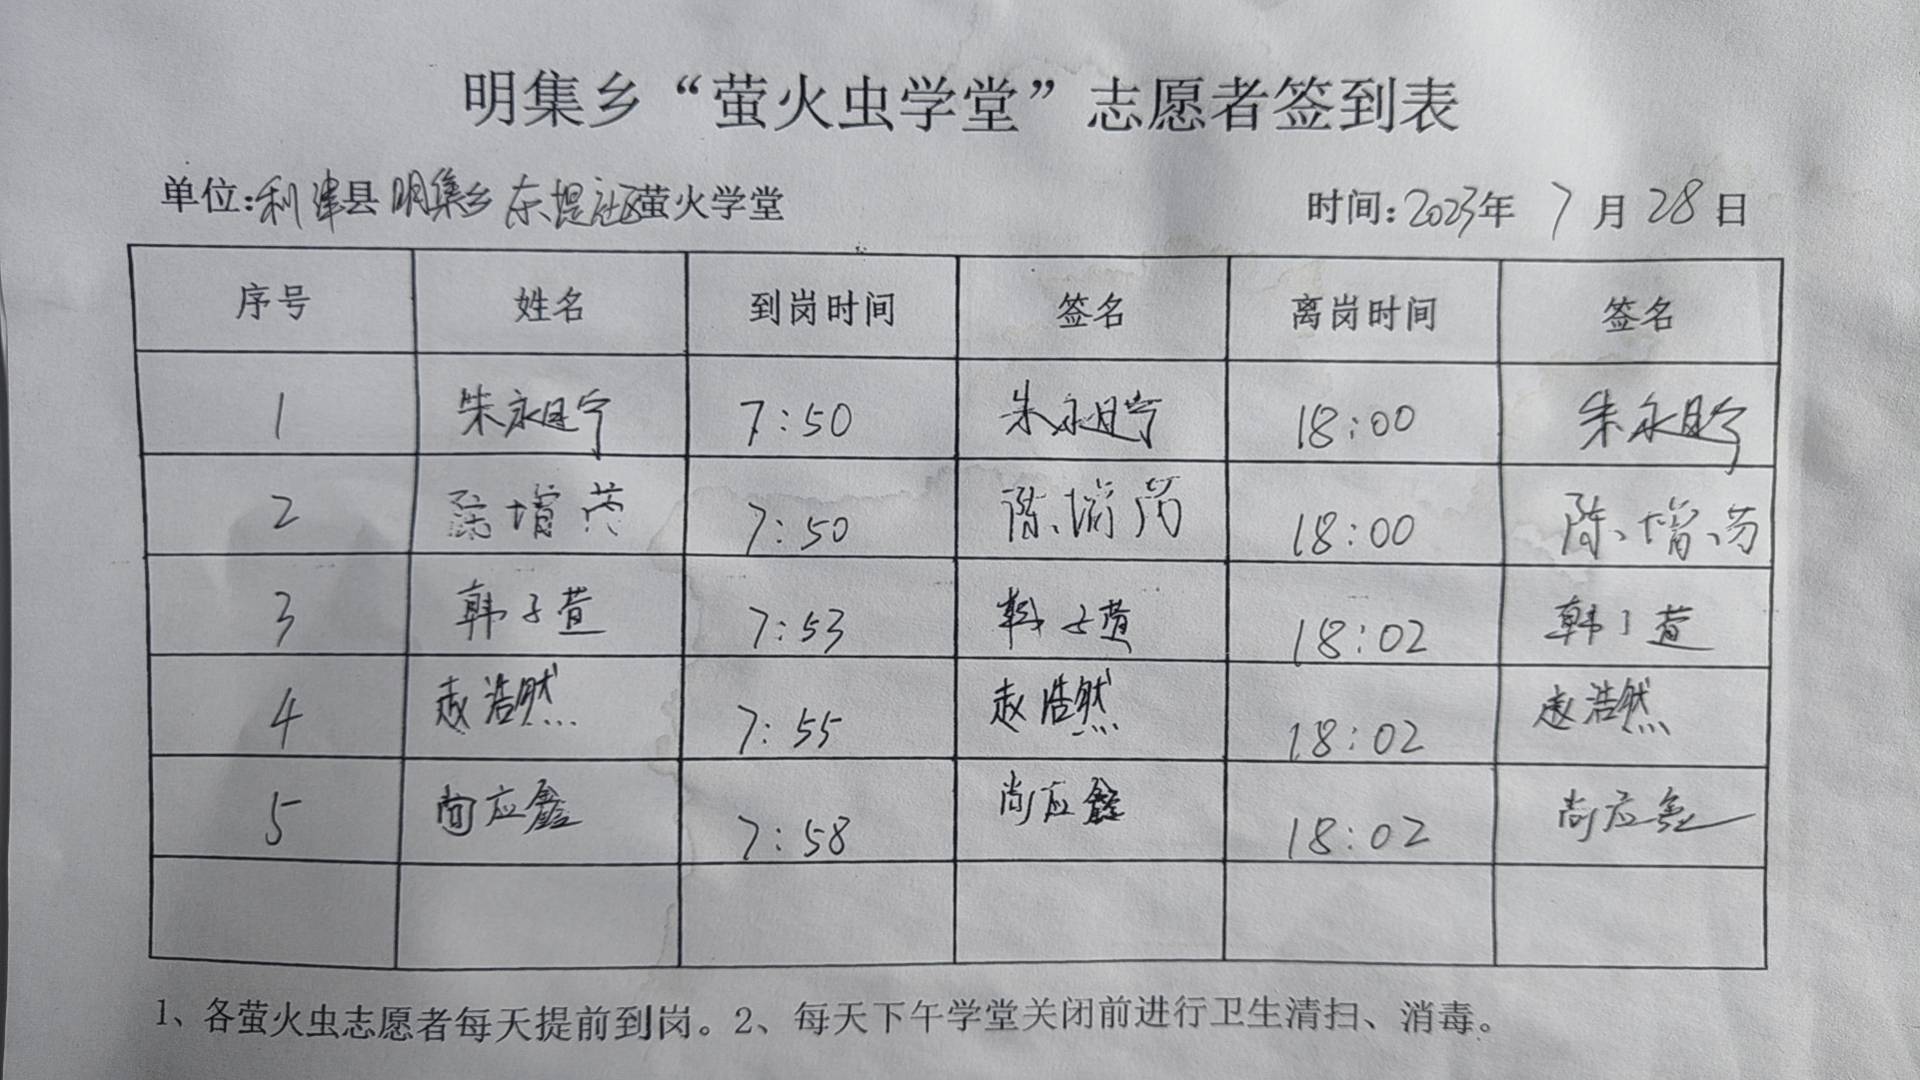 明集乡“萤火虫学堂”志愿者签到表
单位:利津县明集乡东堤社区萤火学堂
时间:2023年7月28日
序号 姓名 到岗时间 签名 离岗时间 签名
1 朱永 7:50 朱永 18:00 朱永
2 陈增芳 7:50 陈增芳 18:00 陈增芳
3 韩子萱 7:53 韩子萱 18:02 韩子萱
4 赵浩然 7:55 赵浩然 18:02 赵浩然
5 尚应鑫 7:58 尚应鑫 18:02 尚应鑫
1、各萤火虫志愿者每天提前到岗。2、每天下午学堂关闭前进行卫生清扫、消毒。